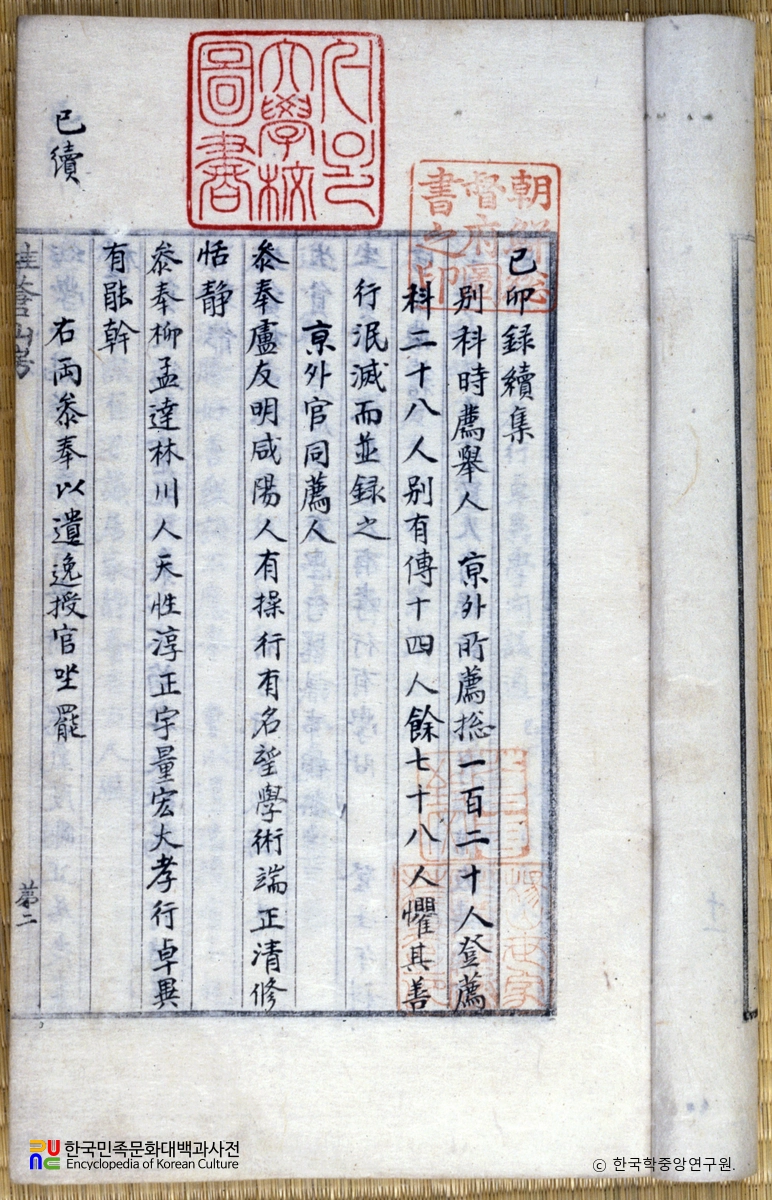 己卯録續集
別科時薦舉人 京外所薦捴一百二十人登薦
科二十八人別有傳十四人餘七十八人懼其善
行泯滅而並録之
京外官同薦人
叅奉盧友明咸陽人有操行有名望學術端正清修
恬静
叅奉柳孟達林川人天性淳正宇量宏大孝行卓異
有能幹
右兩叅奉以遺逸授官坐罷
己續
第二
朝鮮総
督府圖
書之印
大學校
圖書
한국민족문화대백과사전
Encyclopedia of Korean Culture
© 한국학중앙연구원.